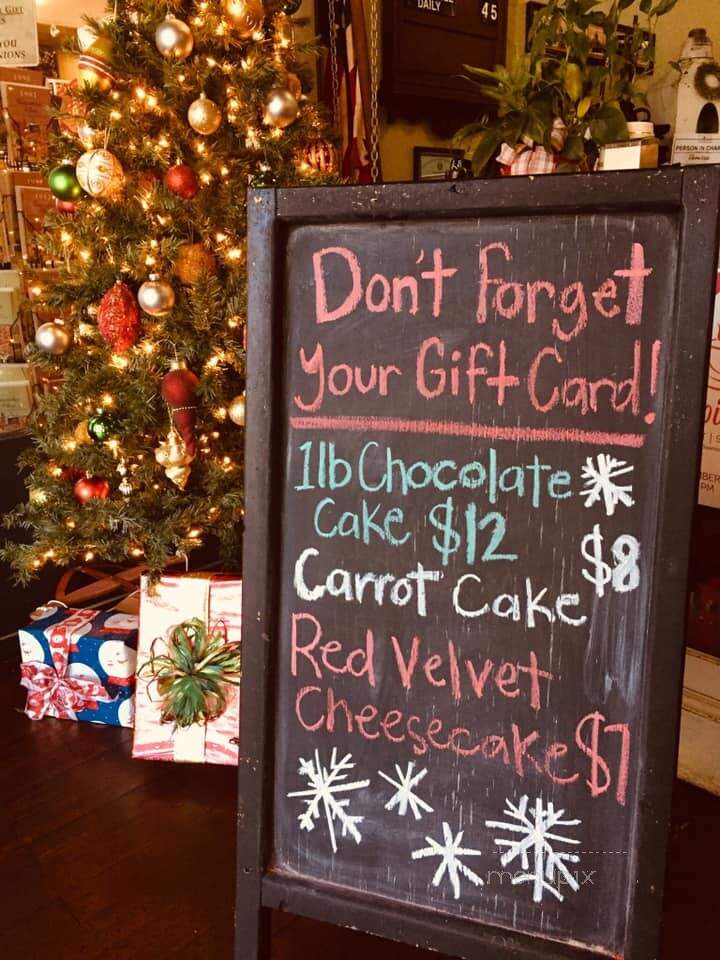 DAILY
45
PERSON IN CHARGE
Don't Forget
Your Gift Card!
1lb Chocolate
Cake $12
Carrot Cake $8
Red Velvet
Cheesecake $7
menupix